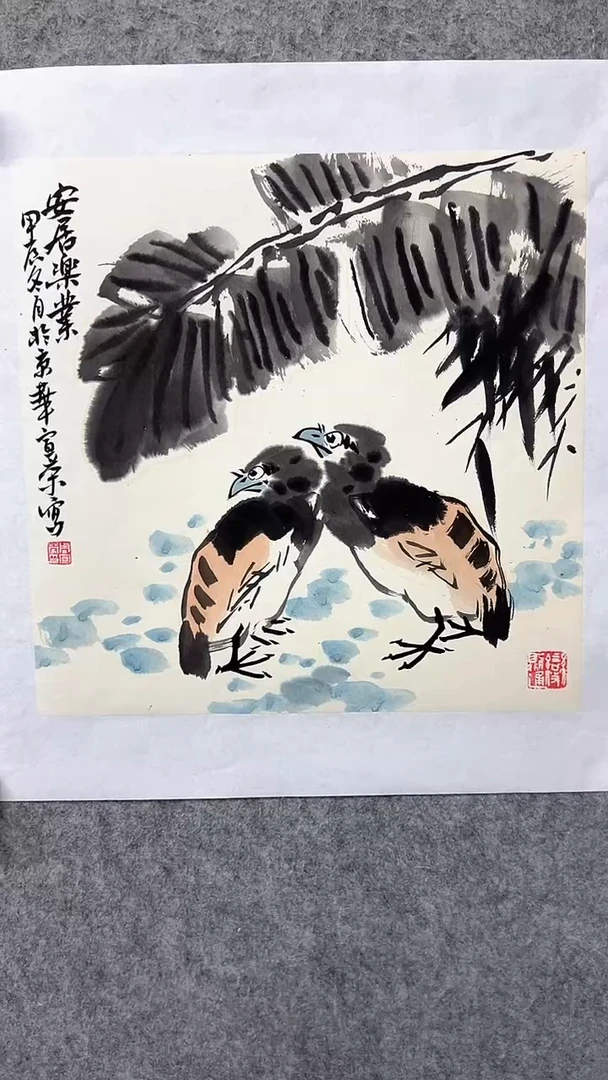 安居樂業
甲辰冬月於京華宣荣寫